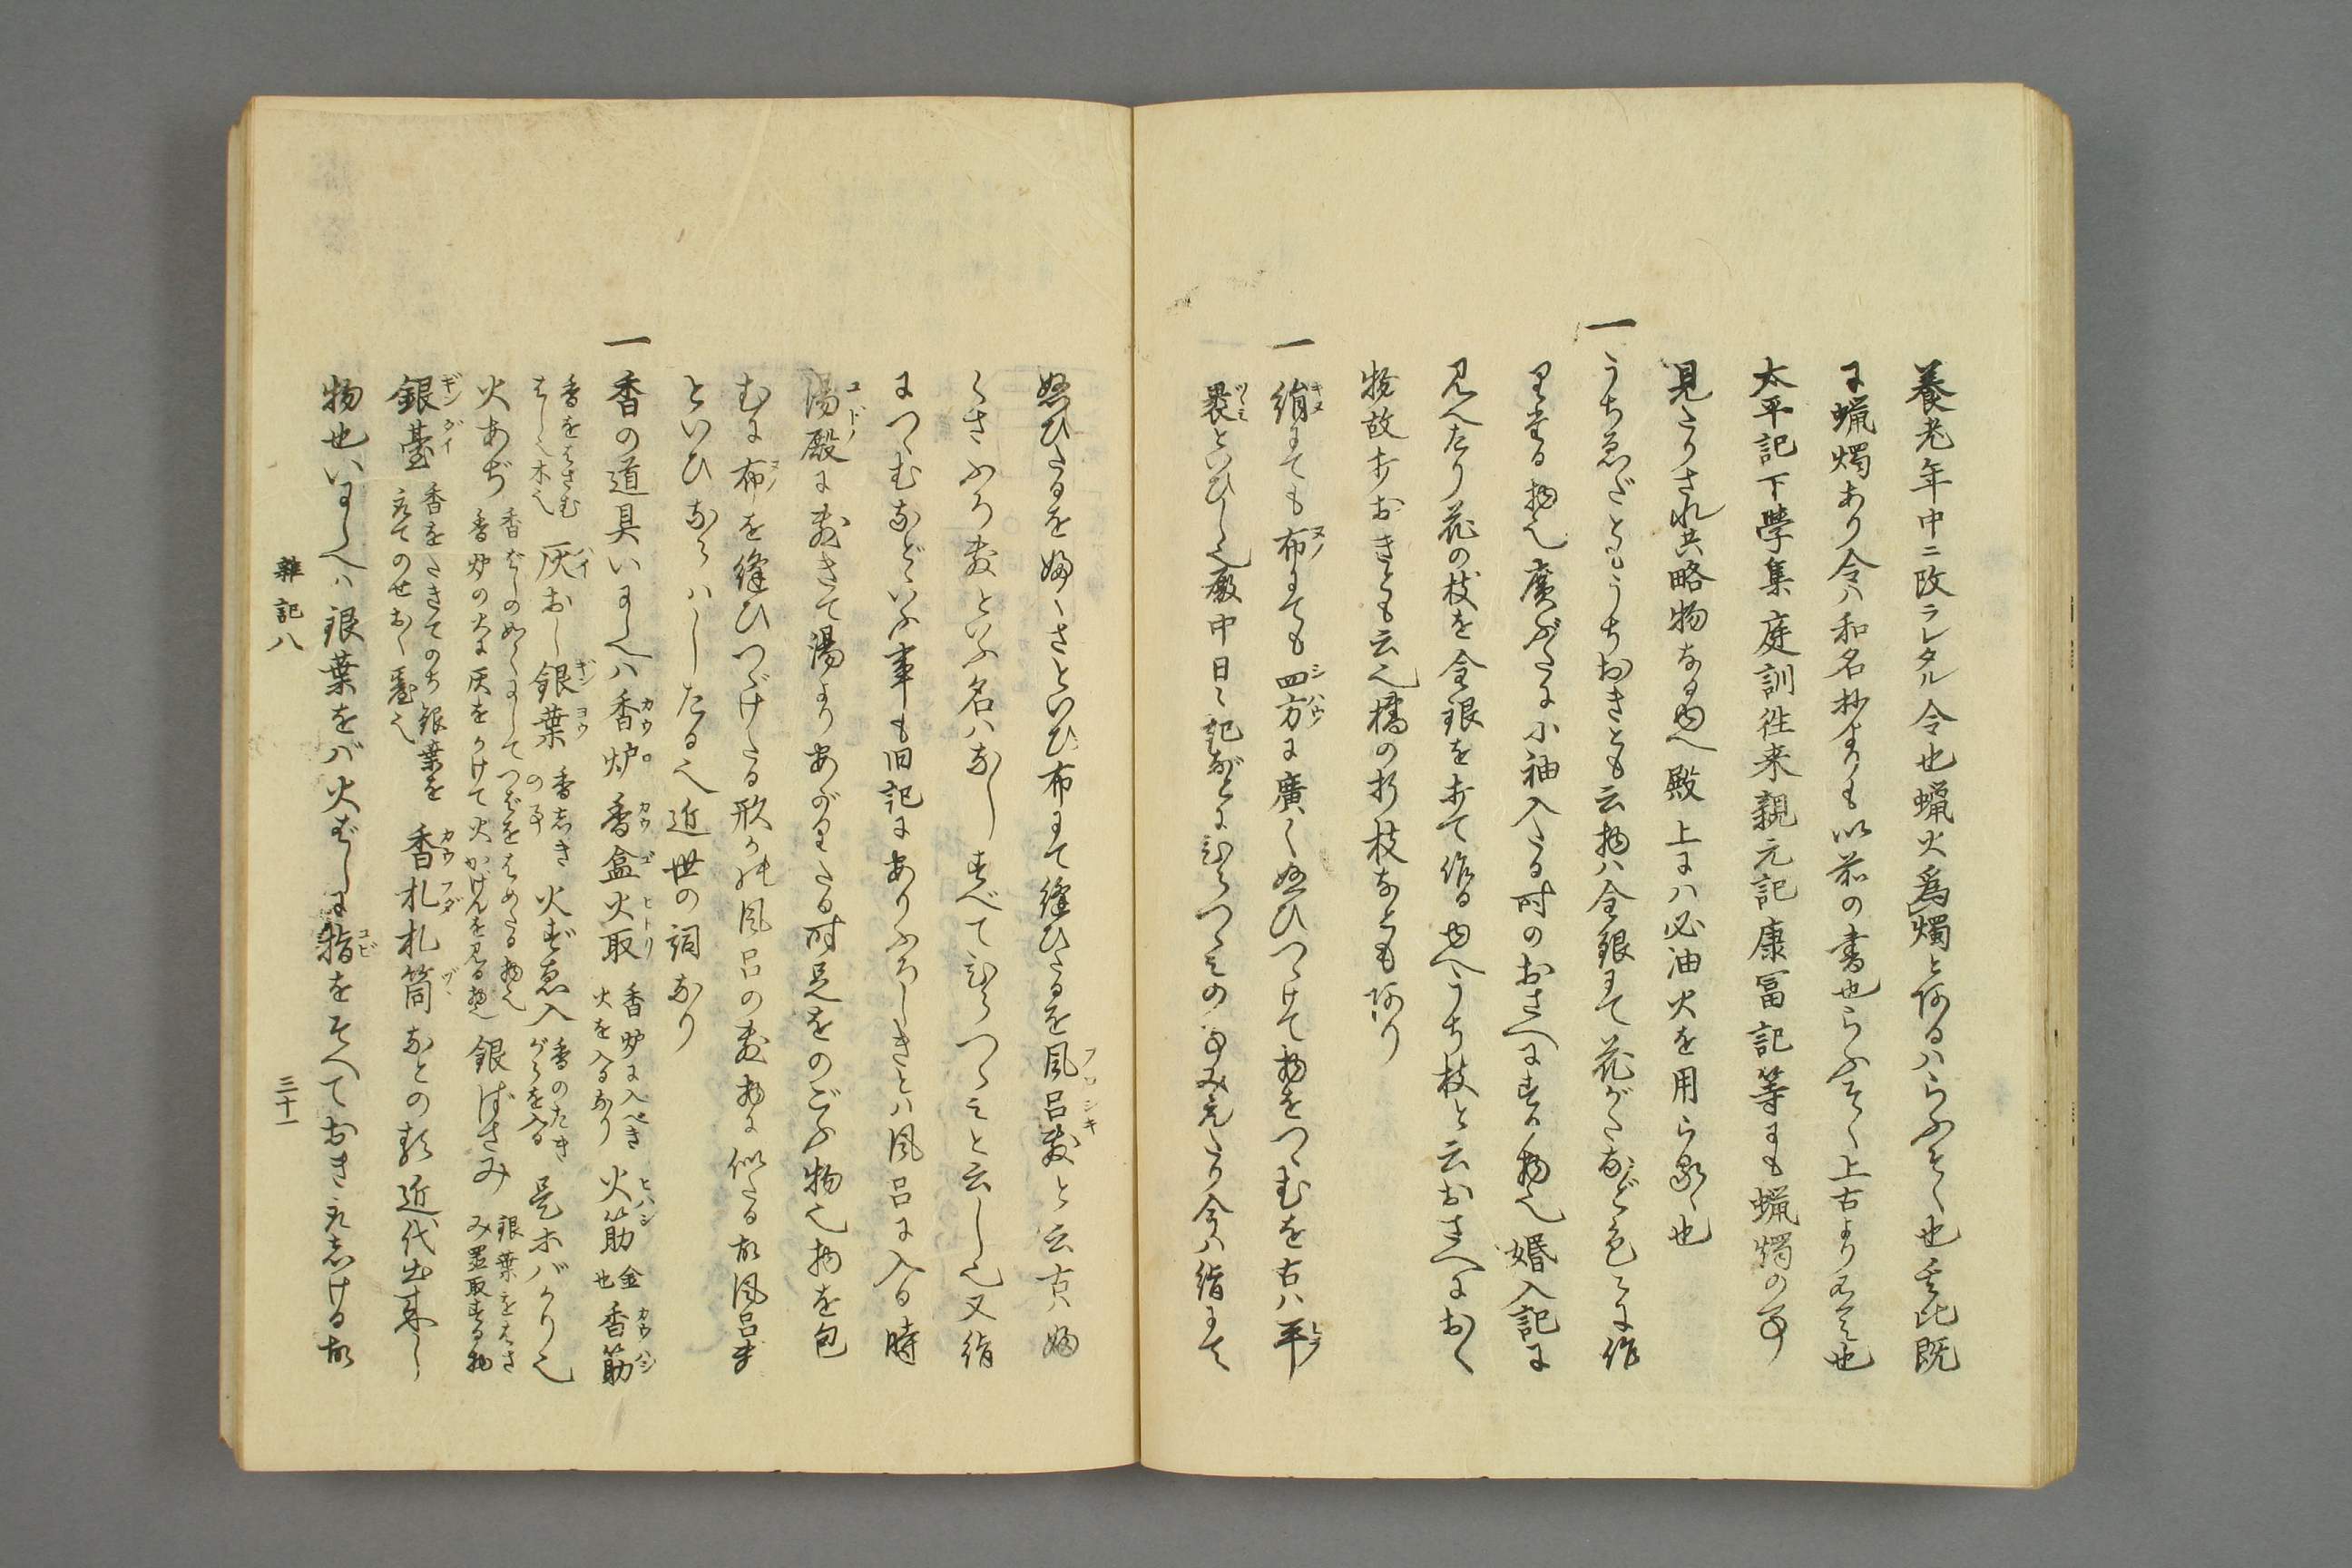 養老年中ニ改ラレタル令也蝋火爲燭と有るハらふそく也是此既
に蝋燭あり令ハ和名抄よりも以前の書也らふそく上古より有之也
太平記下學集庭訓徃来親元記康冨記等にも蝋燭の事
見たりされ共略物なる歟殿上にハ必油火を用らるゝ也
一うち忍だともうちおきとも云物ハ金銀にて花がたなど色々に作
りたる物也廣ぶたに小袖入たる時のおさへにする物也婚入記に
見へたり花の枝を金銀を打て作る故へうち枝と云おさへにおく
物故打おきとも云也橘の折枝なども有り
一絹にても布にても四方に廣く縫ひつゝけて物をつゝむを古ハ平
裹といひし也殿中日々記などにひらつゝみの事みえたり今ハ絹にて
縫ひたるを婦くさといひ布にて縫ひたるを風呂敷と云古ハ婦
くさふろ敷といふ名ハなしすべてひらつゝみと云し也又絹
につゝむなどゝいふ事も旧記にありふろしきとハ風呂に入る時
湯殿に敷きて湯よりあがりたる時足をのごふ物也物を包
むに布を縫ひつゞけたる形か此風呂の敷物に似たる故風呂敷
といひならハしたる也近世の詞なり
一香の道具いにしへハ香炉香盒火取 香炉に入べき火を入るなり 火筋 金也 香筋
香をはさむはし也木也 灰おし銀葉 香しきの事 火ずゑ入 香のたきがらを入る 是木バかり也
火あぢ 香ばしの如くにしてつばをはめたる物也香炉の火に灰をかけて火かげんを見る物也 銀ばさみ 銀葉をはさみ置取する物
銀臺 香をたきてのち銀葉を取てのせおく臺也 香札札筒なとの類近代出来し
物也いにしへハ銀葉をバ火ばしに指をそへておき取しける故
雜記八
三十一